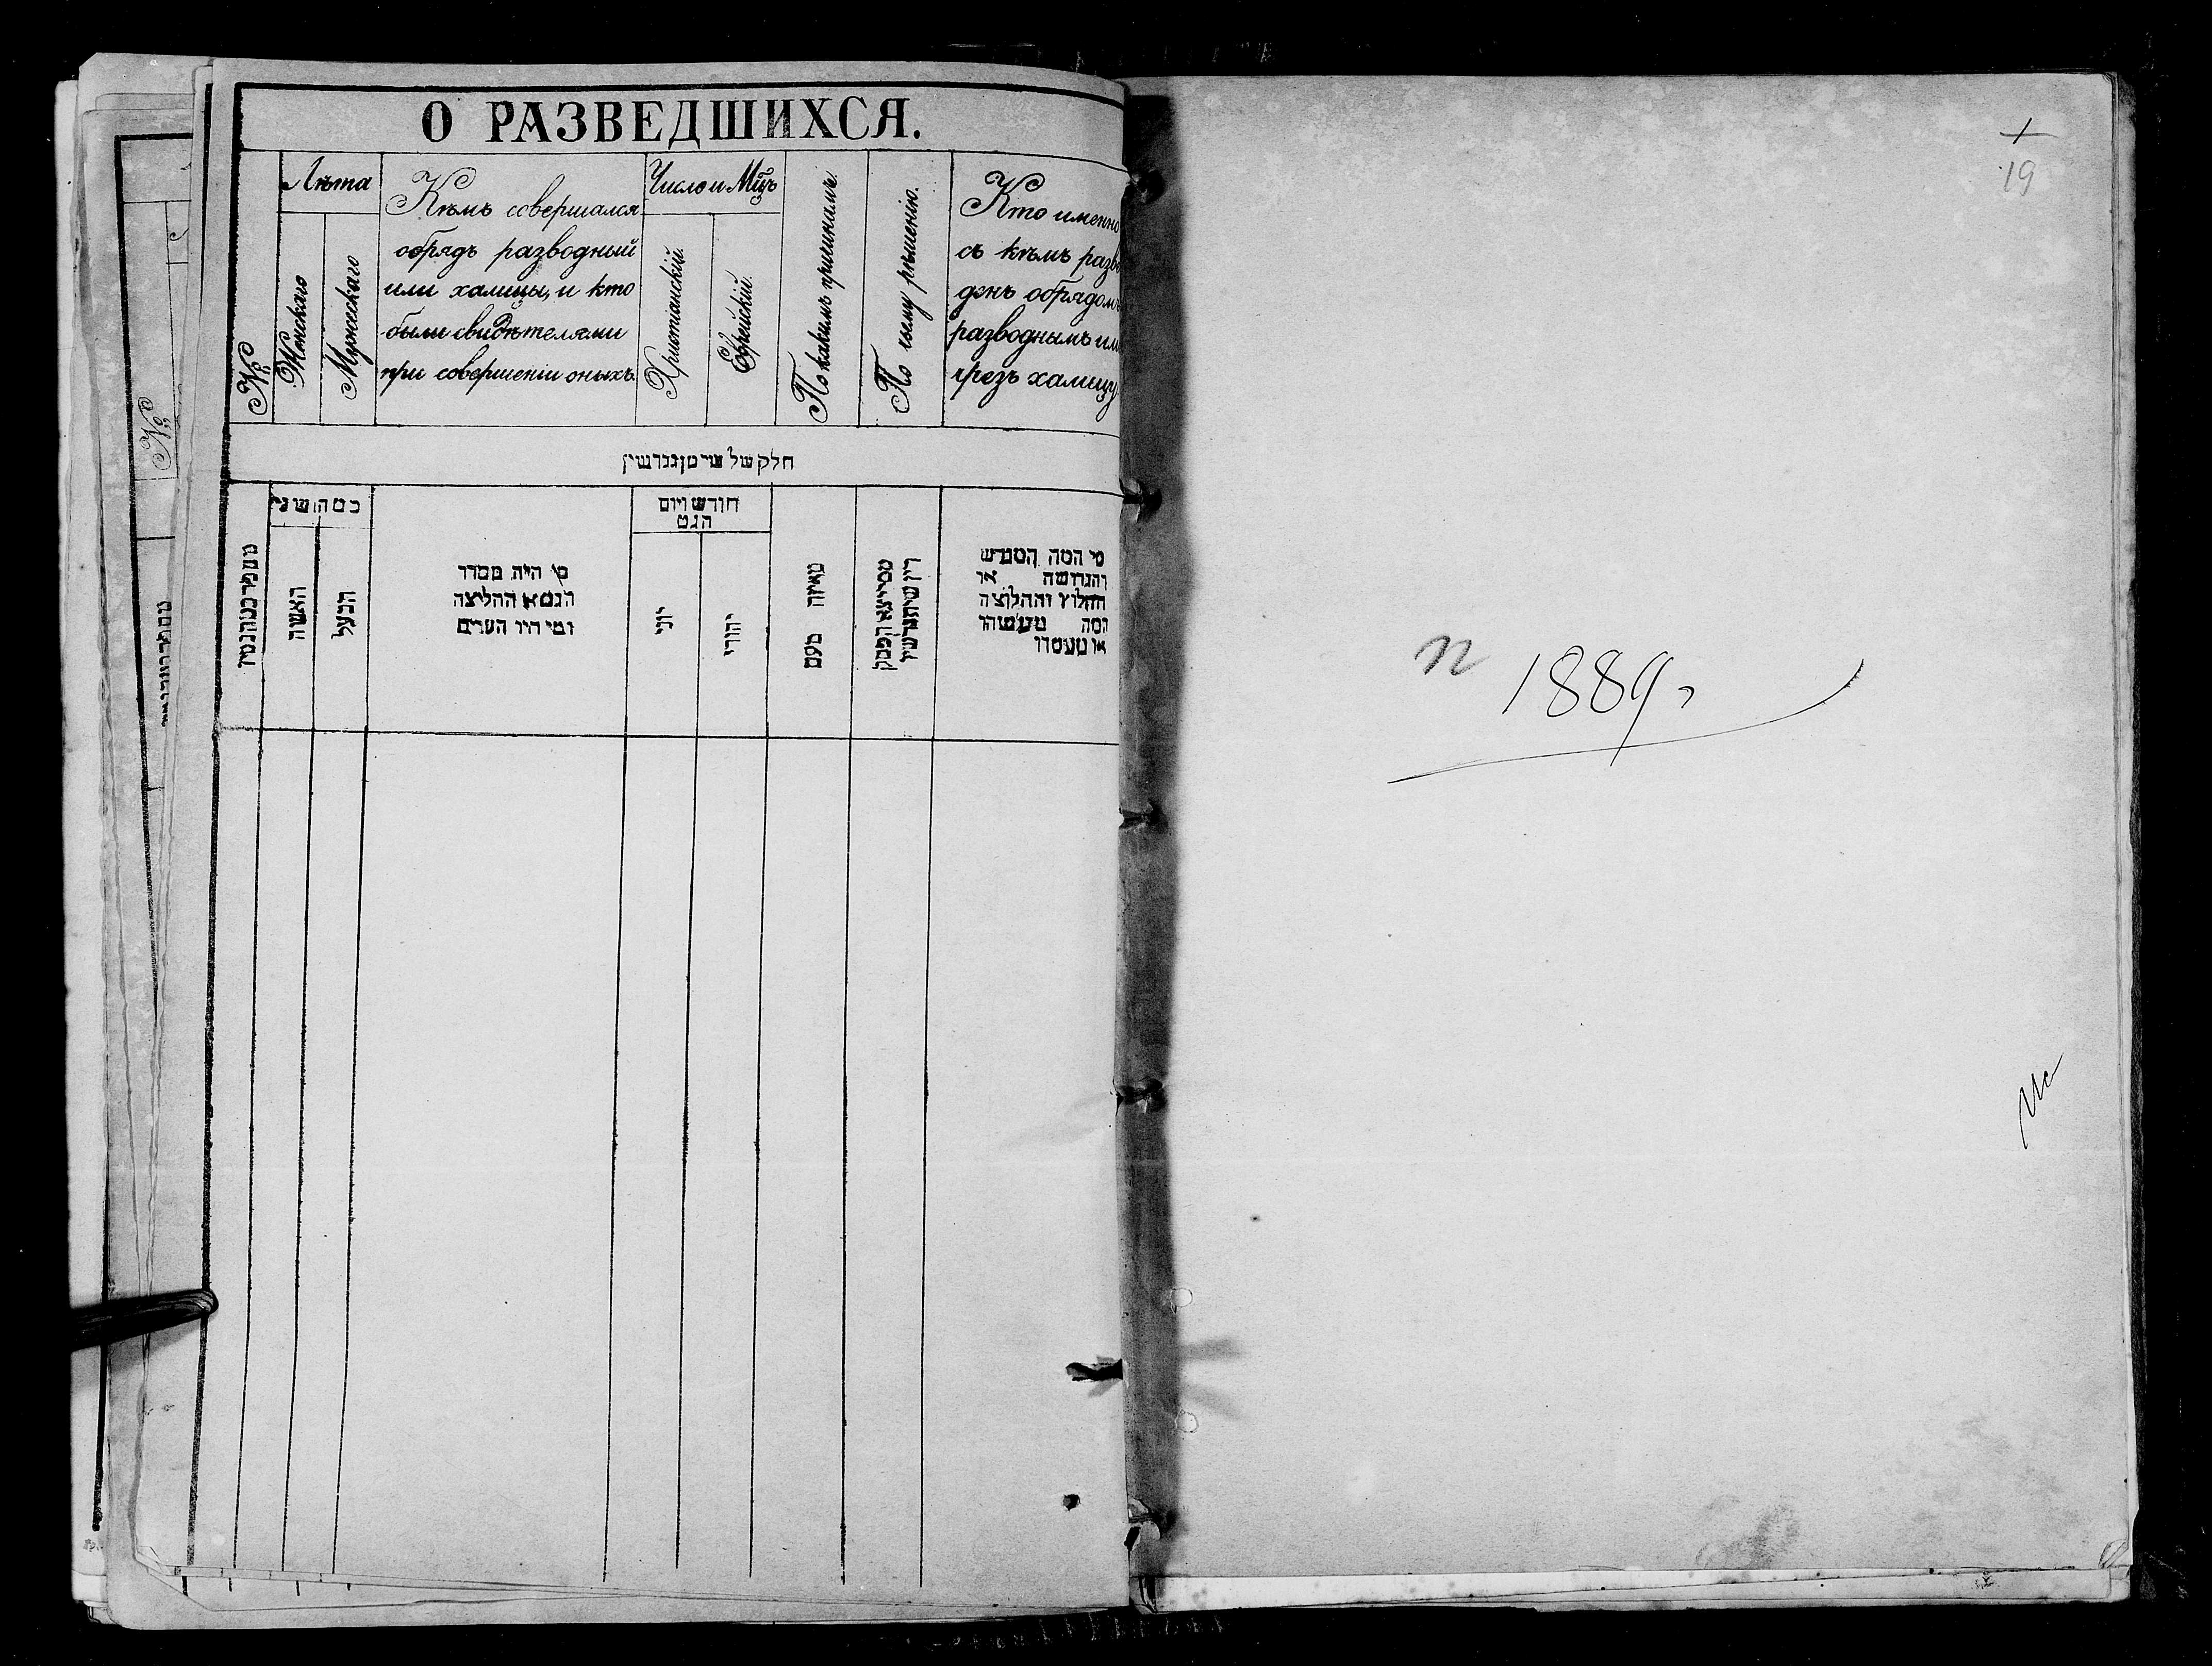 О РАЗВЕДШИХСЯ.
№
Лѣта
Женскаго
Мужескаго
Кѣмъ совершался
обрядъ разводный
или халицы, и кто
были свидѣтелями
при совершеніи оныхъ.
Число и Мцъ
Христіанскій.
Еврейскій.
По какимъ причинамъ.
По чьему рѣшенію.
Кто именно
съ кѣмъ разве
денъ обрядомъ
разводнымъ или
чрезъ халицу
חלק של
כמה שני
האשה
הבעל
מי היה מסדר
הגט או החליצה
ומי היו העדים
חודש ויום
הגט
יוני
יהודי
מאיזה טעם
מי המה המגרש
והגרושה או
החולץ והחלוצה
ומה מעשיהו
או מעמדו
№
19
1889 г